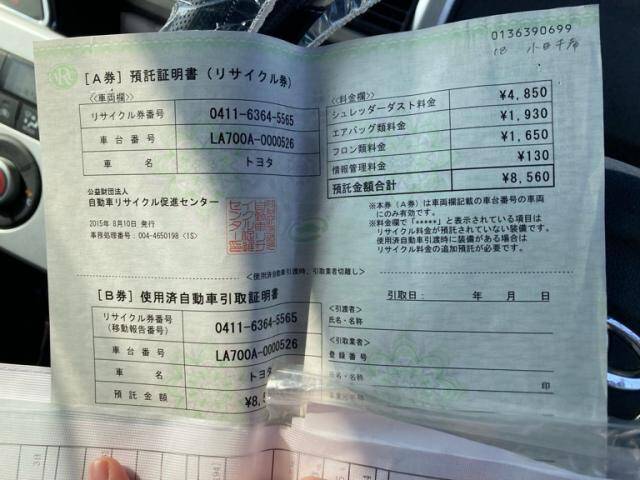 0136390699
[A券] 預託証明書 (リサイクル券)
≪車両欄≫
リサイクル券番号 0411-6364-5565
車台番号 LA700A-0000526
車名 トヨタ
公益財団法人
自動車リサイクル促進センター
2015年 8月10日 発行
事務処理番号:004-4650198 <1S>
≪料金欄≫
シュレッダーダスト料金 ¥4,850
エアバッグ類料金 ¥1,930
フロン類料金 ¥1,650
情報管理料金 ¥130
預託金額合計 ¥8,560
※本券(A券)は車両欄記載の車台番号の車両
にのみ有効です。
※料金欄で「*****」と表示されている項目は
リサイクル料金が預託されていない装備です。
使用済自動車引渡時に装備がある場合は
リサイクル料金の追加預託が必要です。
<使用済自動車引渡時、引取業者切離し>
[B券] 使用済自動車引取証明書
リサイクル券番号
(移動報告番号) 0411-6364-5565
車台番号 LA700A-0000526
車名 トヨタ
預託金額 ¥8,
引取日: 年 月 日
<引渡者>
氏名・名称
<引取業者>
登録番号
氏名・名称 印